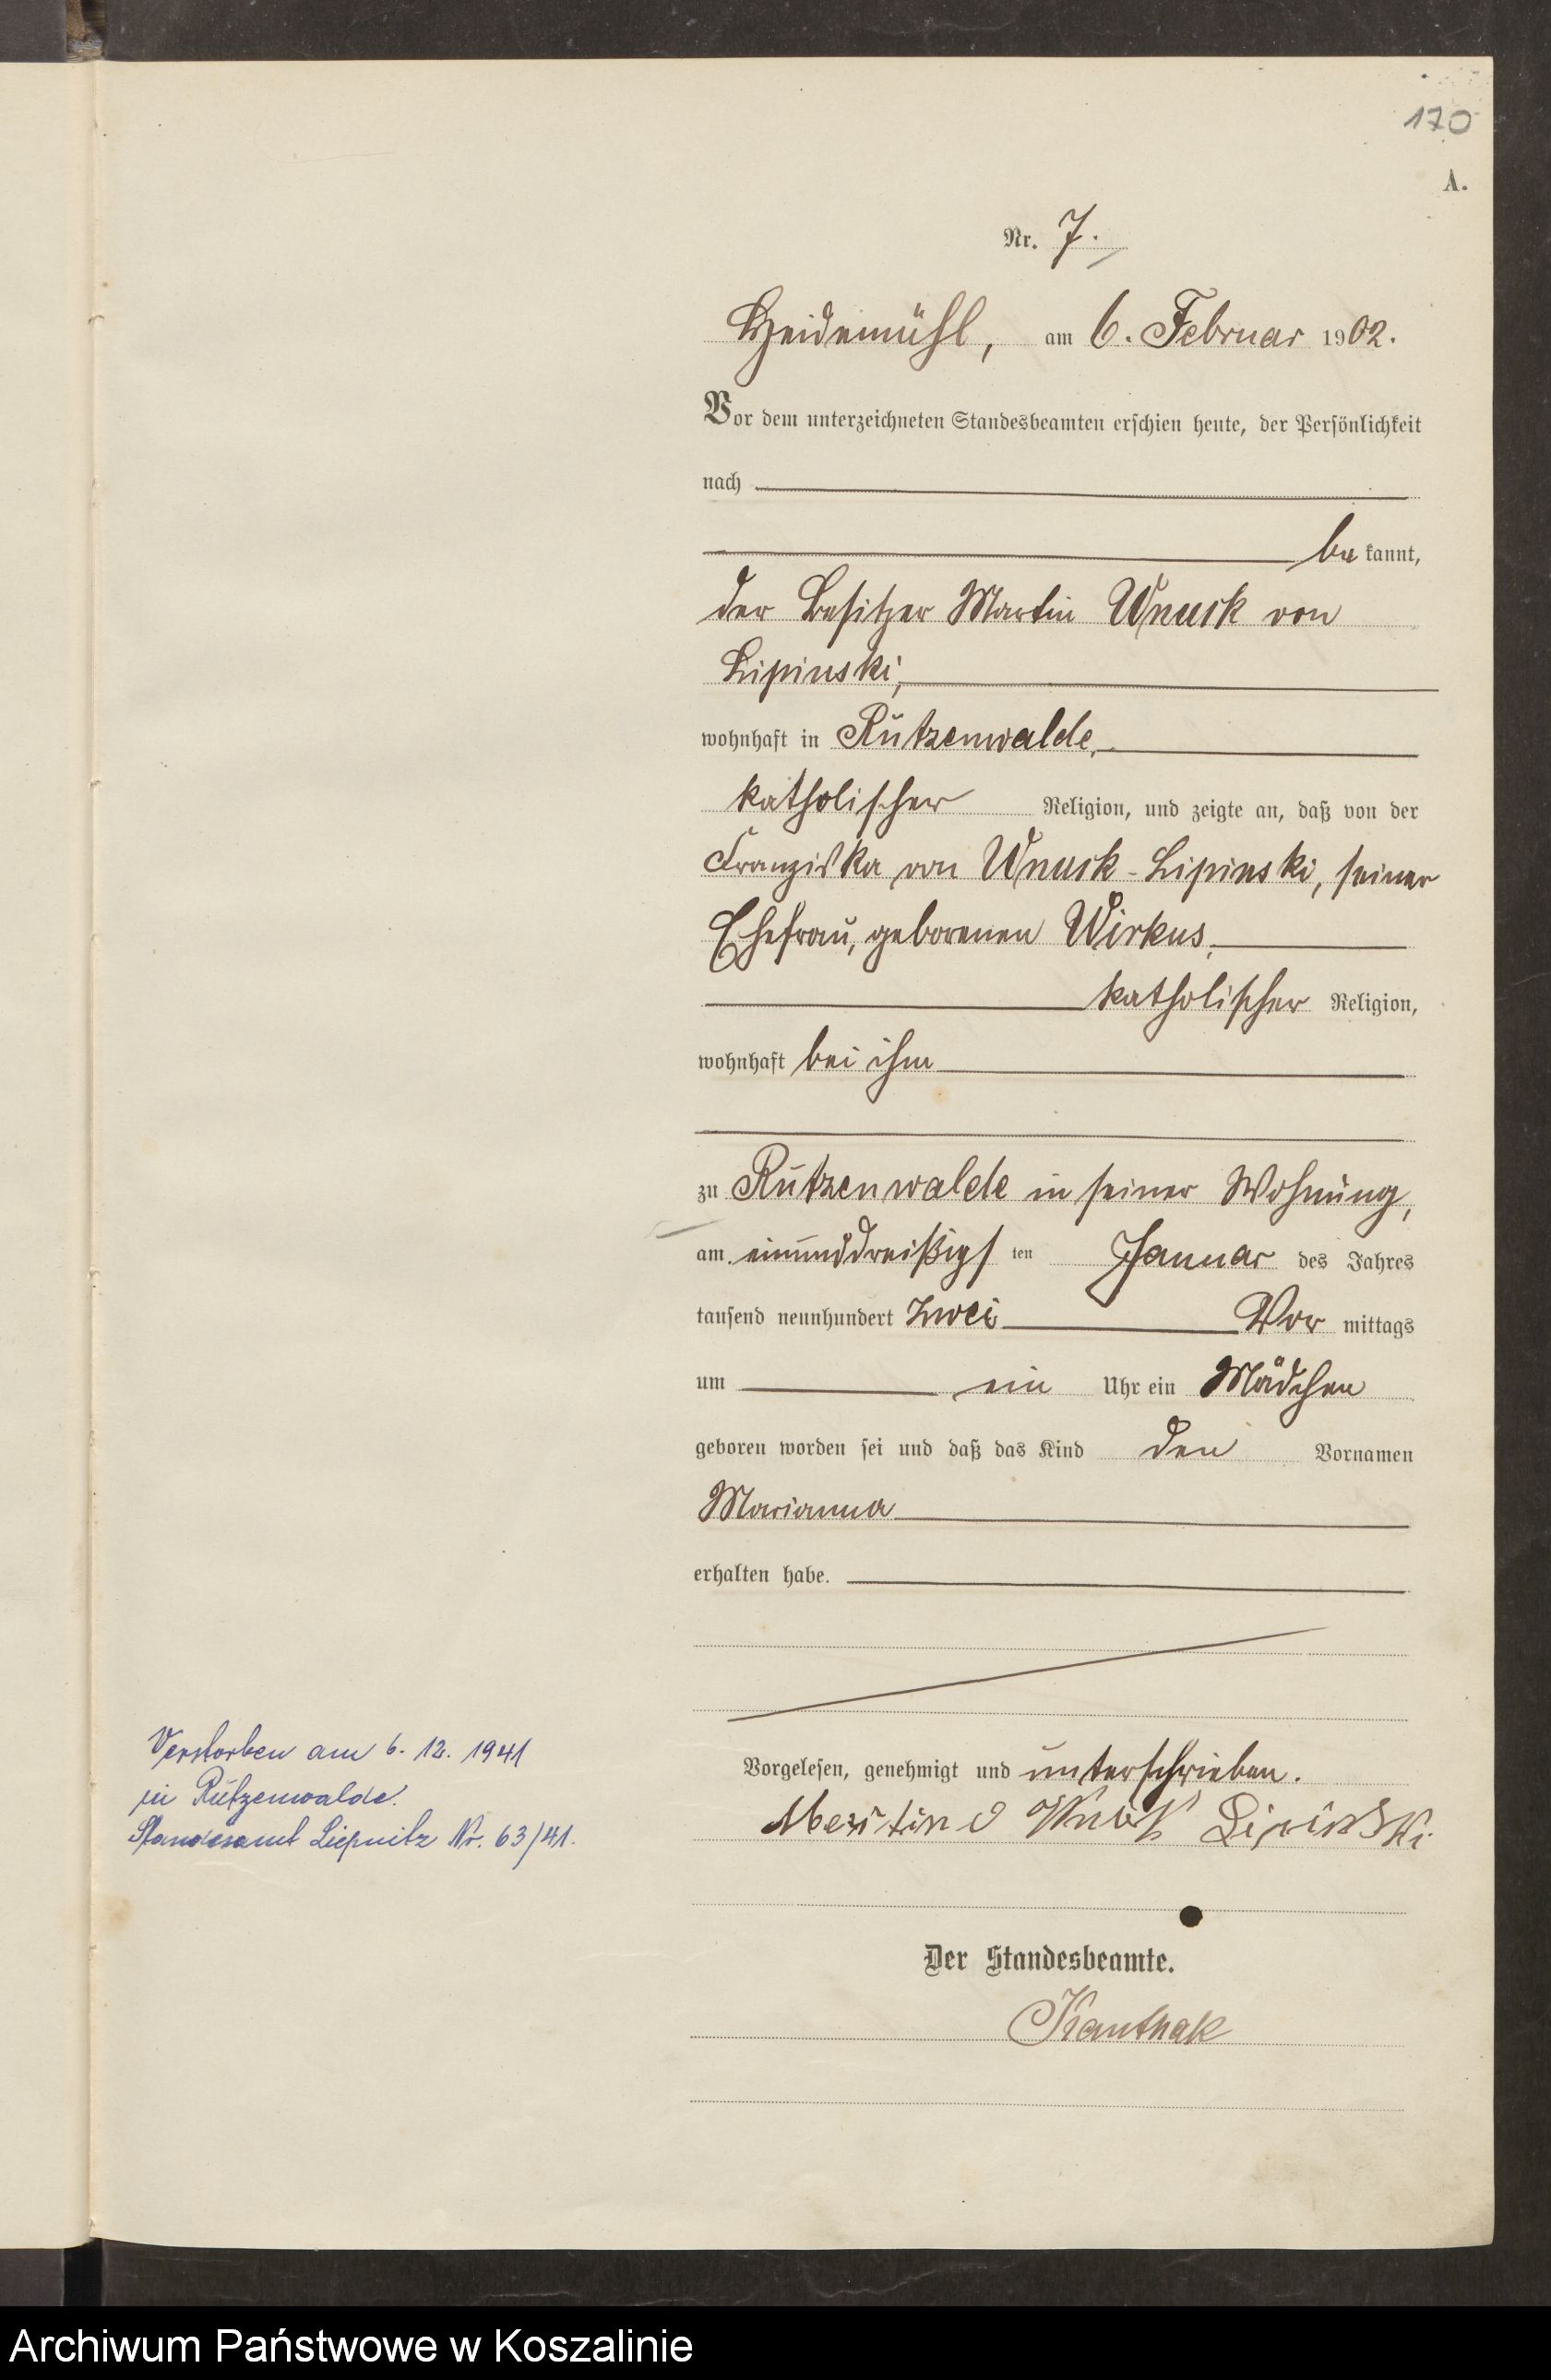 170
A.
Nr. 7.
Heidemühl, am 6. Februar 1902.
Vor dem unterzeichneten Standesbeamten erschien heute, der Persönlichkeit
nach
be kannt,
der Besitzer Martin Wnuck von
Lipinski,
wohnhaft in Rutzenwalde,
katholischer Religion, und zeigte an, daß von der
Franziska von Wnuck-Lipinski, seiner
Ehefrau, geborenen Wirkus,
katholischer Religion,
wohnhaft bei ihm
zu Rutzenwalde in seiner Wohnung,
am einunddreißigs ten Januar des Jahres
tausend neunhundert zwei Vor mittags
um ein Uhr ein Mädchen
geboren worden sei und daß das Kind den Vornamen
Marianna
erhalten habe.
Verstorben am 6. 12. 1941
in Rutzenwalde.
Standesamt Liepnitz Nr. 63/41.
Vorgelesen, genehmigt und unterschrieben.
Lipinski
Der Standesbeamte.
Kanthak
Archiwum Państwowe w Koszalinie